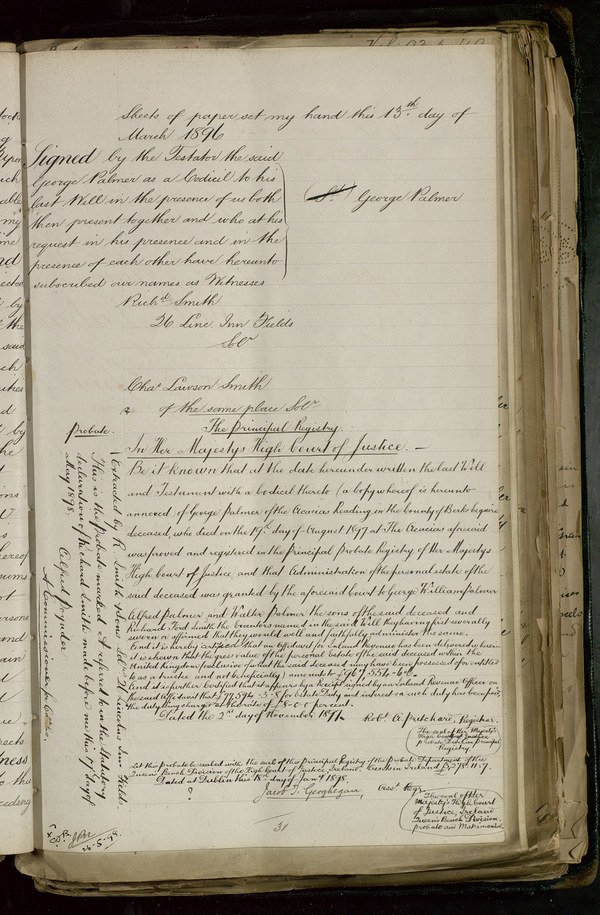 Sheets of paper set my hand this 13th day of
March 1896
Signed by the Testator the said
George Palmer as a Codicil to his
last Will in the presence of us both
then present together and who at his
request in his presence and in the
presence of each other have hereunto
subscribed our names as Witnesses
George Palmer
Richd Smith
26 Linc Inn Fields
Solr
Chas Lawson Smith
of the same place Solr
Probate.
The Principal Registry.
In Her Majestys High Court of Justice. —
Be it known that at the date hereunder written the last Will
and Testament with a Codicil thereto (a copy whereof is hereunto
annexed of George palmer of the Acacias Reading in the County of Berks Esquire
deceased, who died on the 19th day of August 1897 at The Acacias aforesaid
was proved and registered in the Principal Probate Registry of Her Majestys
High Court of Justice, and that Administration of the personal estate of the
said deceased was granted by the aforesaid Court to George William palmer
Alfred Palmer and Walter Palmer the sons of the said deceased and
Richard Smith the Executors named in the said Will they having first severally
sworn or affirmed that they would well and faithfully administer the same.
And it is hereby certified that an Affidavit for Inland Revenue has been delivered wherein
it is shewn that the gross value of the personal estate of the said deceased within the
United Kingdom (exclusive of what the said deceased may have been possessed of or entitled
to as a trustee and not beneficially) amounts to £967,554.6.
And it is further certified that it appears by a Receipt signed by an Inland Revenue Officer on
the said Affidavit that £77,594.3.8 for Estate Duty and interest on such duty has been paid,
the duty being charged at the rate of £8.0.0 percent.
Dated the 2nd day of November 1897.
Robt A. pritchard, Registrar.
The seal of Her Majestys
High Court of Justice
probate Division principal
Registry.
Let this probate be sealed with the seal of the principal Registry of the probate Department of the
Queens Bench Division of the High Court of Justice, Ireland. Assets in Ireland
Dated at Dublin this 18th day of Jany 1898.
Jacob T. Geoghegan, Asst. Regr
The seal of Her
Majesty's High Court
of Justice, Ireland
Queens Bench Division,
probate and Matrimonial
(Extracted by R. Smith & Sons Solrs Lincolns Inn Fields.
This is the Probate marked A referred to in the Statutory
declaration of Richard Smith made before me this 17th day of
May 1898.
Alfred Poynder
A Commissioner for Oaths.
26-5-98
31